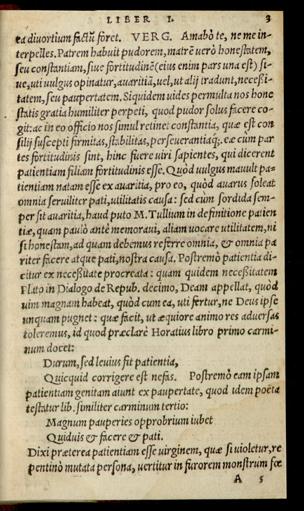 LIBER I. 3
ea diuortium factũ foret. VERG. Amabò te, ne me in-
terpelles. Patrem habuit pudorem, matrẽ verò honestatem,
seu constantiam, siue fortitudinẽ (eius enim pars una est) si-
ue, uti vulgus opinatur, auaritiã, uel, ut alij tradunt, necessi-
tatem, seu paupertatem. Siquidem uides permulta nos hone
statis gratia humiliter perpeti, quod pudor solus facere co-
git: ac in eo officio nos simul retinet constantia, quæ est con
silij suscepti firmitas, stabilitas, perseuerantiaq́;. eæ cum par
tes fortitudinis sint, hinc fuere uiri sapientes, qui dicerent
patientiam filiam fortitudinis esse. Quòd uulgus mauult pa-
tientiam natam esse ex auaritia, pro eo, quòd auarus soleat
omnia seruiliter pati, utilitatis causa: sed cùm sordida sem-
per sit auaritia, haud puto M. Tullium in definitione patien
tiæ, quam paulò antè memoraui, aliam uocare utilitatem, ni
si honestum, ad quam debemus referre omnia, & omnia pa
riter facere atque pati, nostra causa. Postremò patientia di-
citur ex necessitate procreata: quam quidem necessitatem
Plato in Dialogo de Repub. decimo, Deam appellat, quòd
uim magnam habeat, quòd cum ea, uti fertur, ne Deus ipse
unquam pugnet: quæ facit, ut æquiore animo res aduersas
toleremus, id quod præclarè Horatius libro primo carmi-
num docet:
Durum, sed leuius fit patientia,
Quicquid corrigere est nefas. Postremò eam ipsam
patientiam genitam aiunt ex paupertate, quod idem poëta
testatur lib. similiter carminum tertio:
Magnum pauperies opprobrium iubet
Quiduis & facere & pati.
Dixi præterea patientiam esse uirginem, quæ si uioletur, re
pentinò mutata persona, uertitur in furorem monstrum fœ
A 5